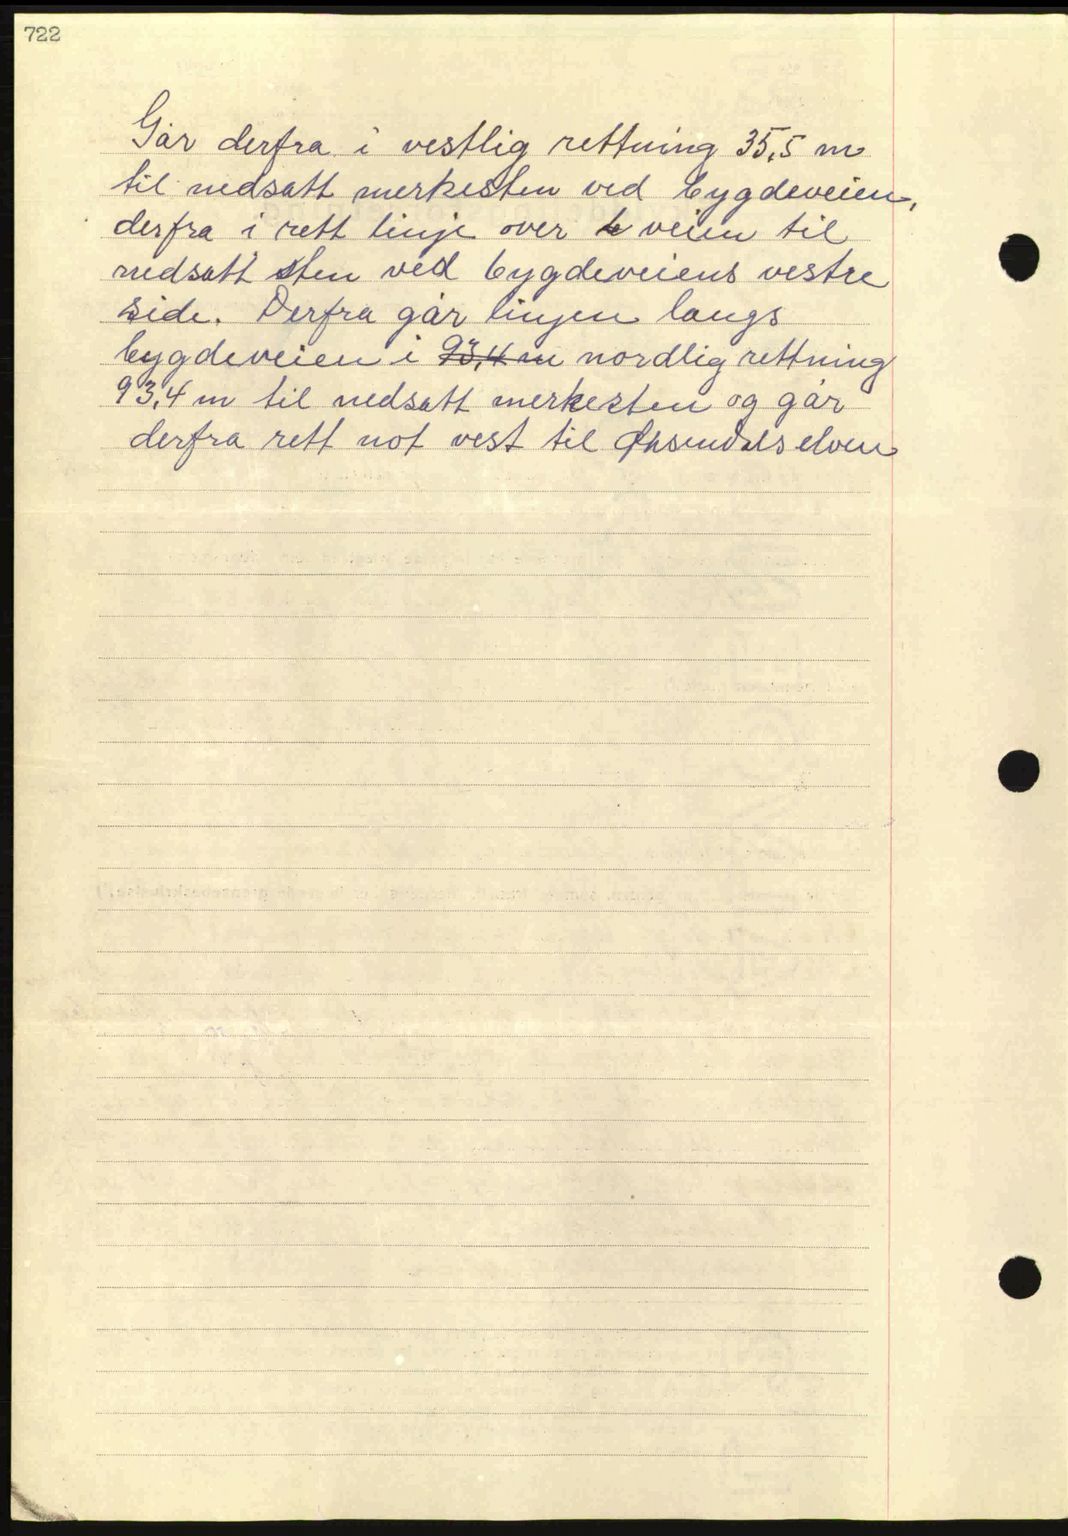 722
Går derfra i vestlig rettning 35,5 m
til nedsatt merkesten ved bygdeveien,
derfra i rett linje over veien til
nedsatt sten ved bygdeveiens vestre
side. Derfra går linjen langs
bygdeveien i 93,4 m nordlig rettning
93,4 m til nedsatt merkesten og går
derfra rett not vest til Øksendalselven